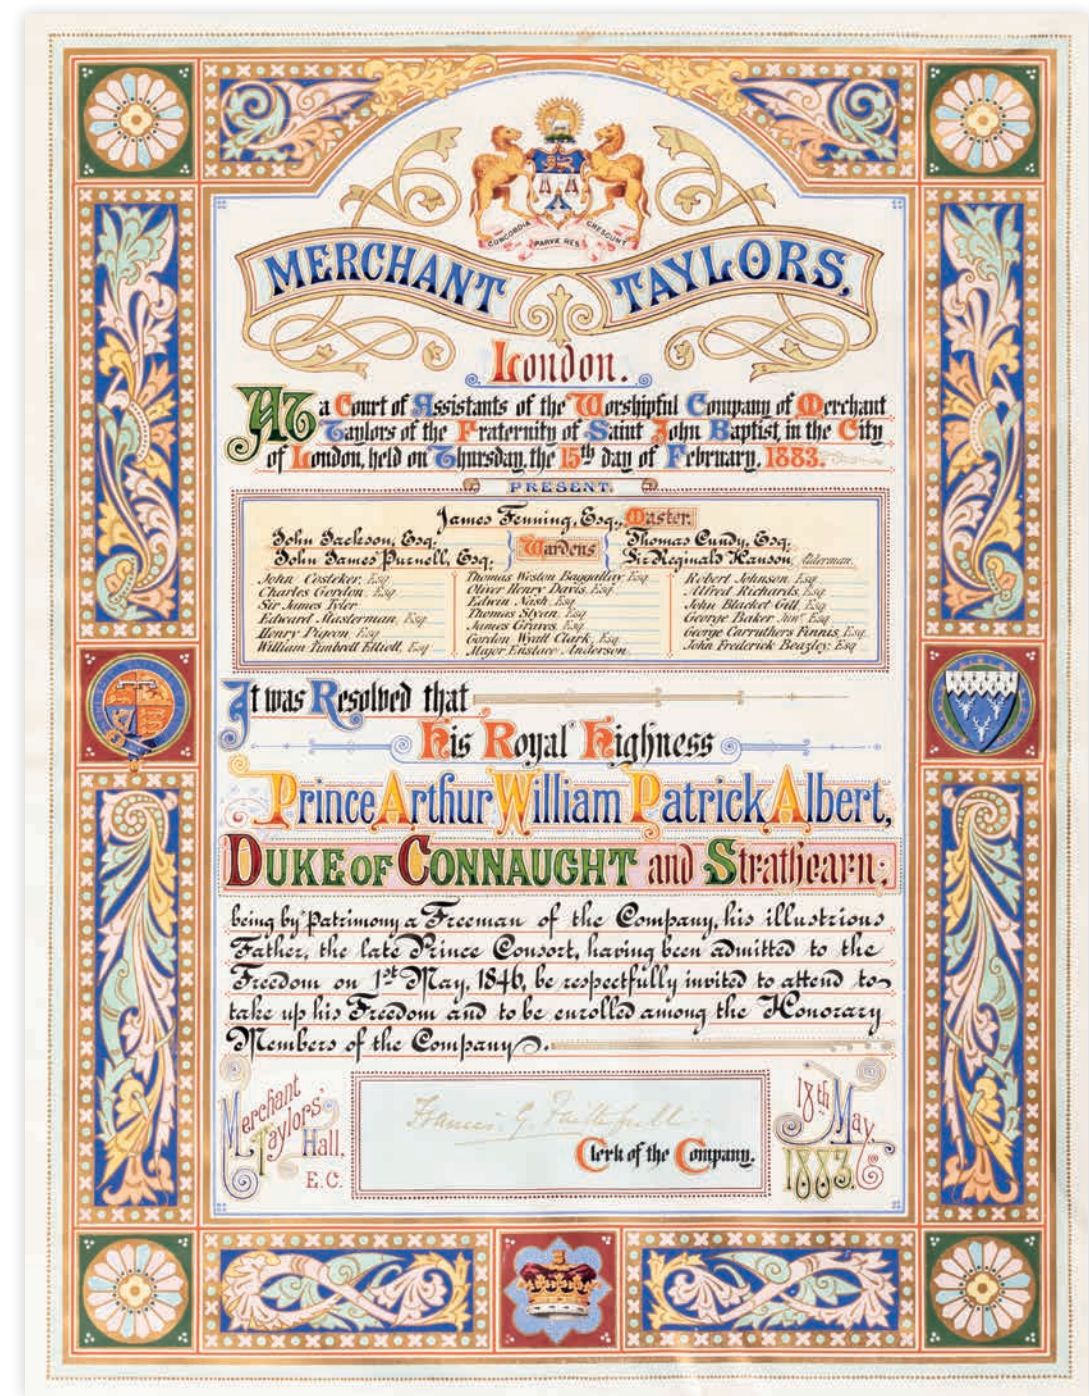 CONCORDIA PARVÆ RES CRESCUNT
MERCHANT TAYLORS,
London.
At a Court of Assistants of the Worshipful Company of Merchant
Taylors of the Fraternity of Saint John Baptist, in the City
of London, held on Thursday, the 15th day of February, 1883.
PRESENT.
James Fenning, Esq., Master.
John Jackson, Esq.
John James Purnell, Esq.
Wardens
Thomas Cundy, Esq.
Sir Reginald Hanson, Alderman.
John Costeker, Esq.
Charles Gordon, Esq.
Sir James Tyler
Edward Masterman, Esq.
Henry Pigeon, Esq.
William Fimbrell Elliott, Esq.
Thomas Weston Baggallay, Esq.
Oliver Henry Davis, Esq.
Edwin Nash, Esq.
Thomas Styan, Esq.
James Graves, Esq.
Gordon Wyatt Clark, Esq.
Major Eustace Anderson.
Robert Johnson, Esq.
Alfred Richards, Esq.
John Blacket Gill, Esq.
George Baker Junr. Esq.
George Carruthers Finnis, Esq.
John Frederick Beazley, Esq.
It was Resolved that
His Royal Highness
Prince Arthur William Patrick Albert,
DUKE OF CONNAUGHT and Strathearn;
being by Patrimony a Freeman of the Company, his illustrious
Father, the late Prince Consort, having been admitted to the
Freedom on 1st May, 1846, be respectfully invited to attend to
take up his Freedom and to be enrolled among the Honorary
Members of the Company.
Merchant
Taylors'
Hall,
E.C.
Francis G. Faithfull
Clerk of the Company.
18th May,
1883.